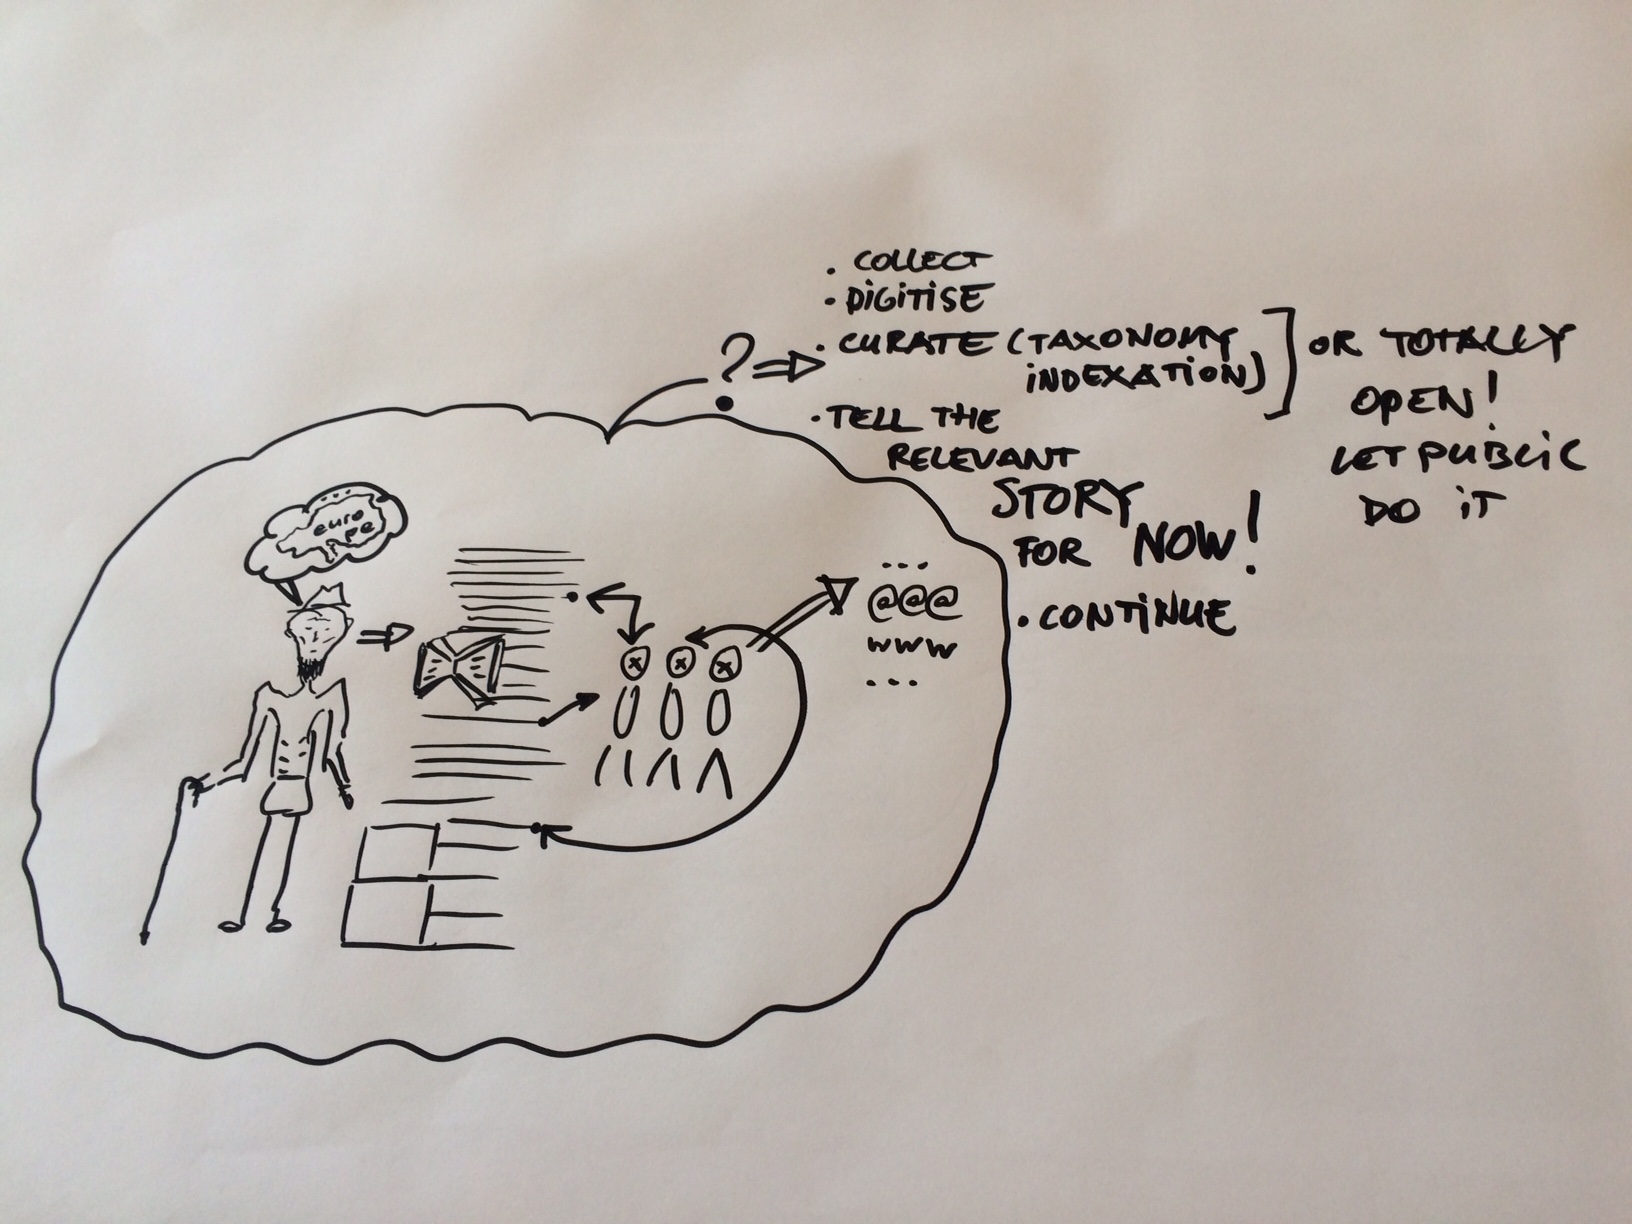 . COLLECT
. DIGITISE
?
. CURATE (TAXONOMY
INDEXATION)
] OR TOTALLY
OPEN!
LET PUBLIC
DO IT
. TELL THE
RELEVANT
STORY
FOR NOW!
. CONTINUE
euro
pe
...
@@@
www
...